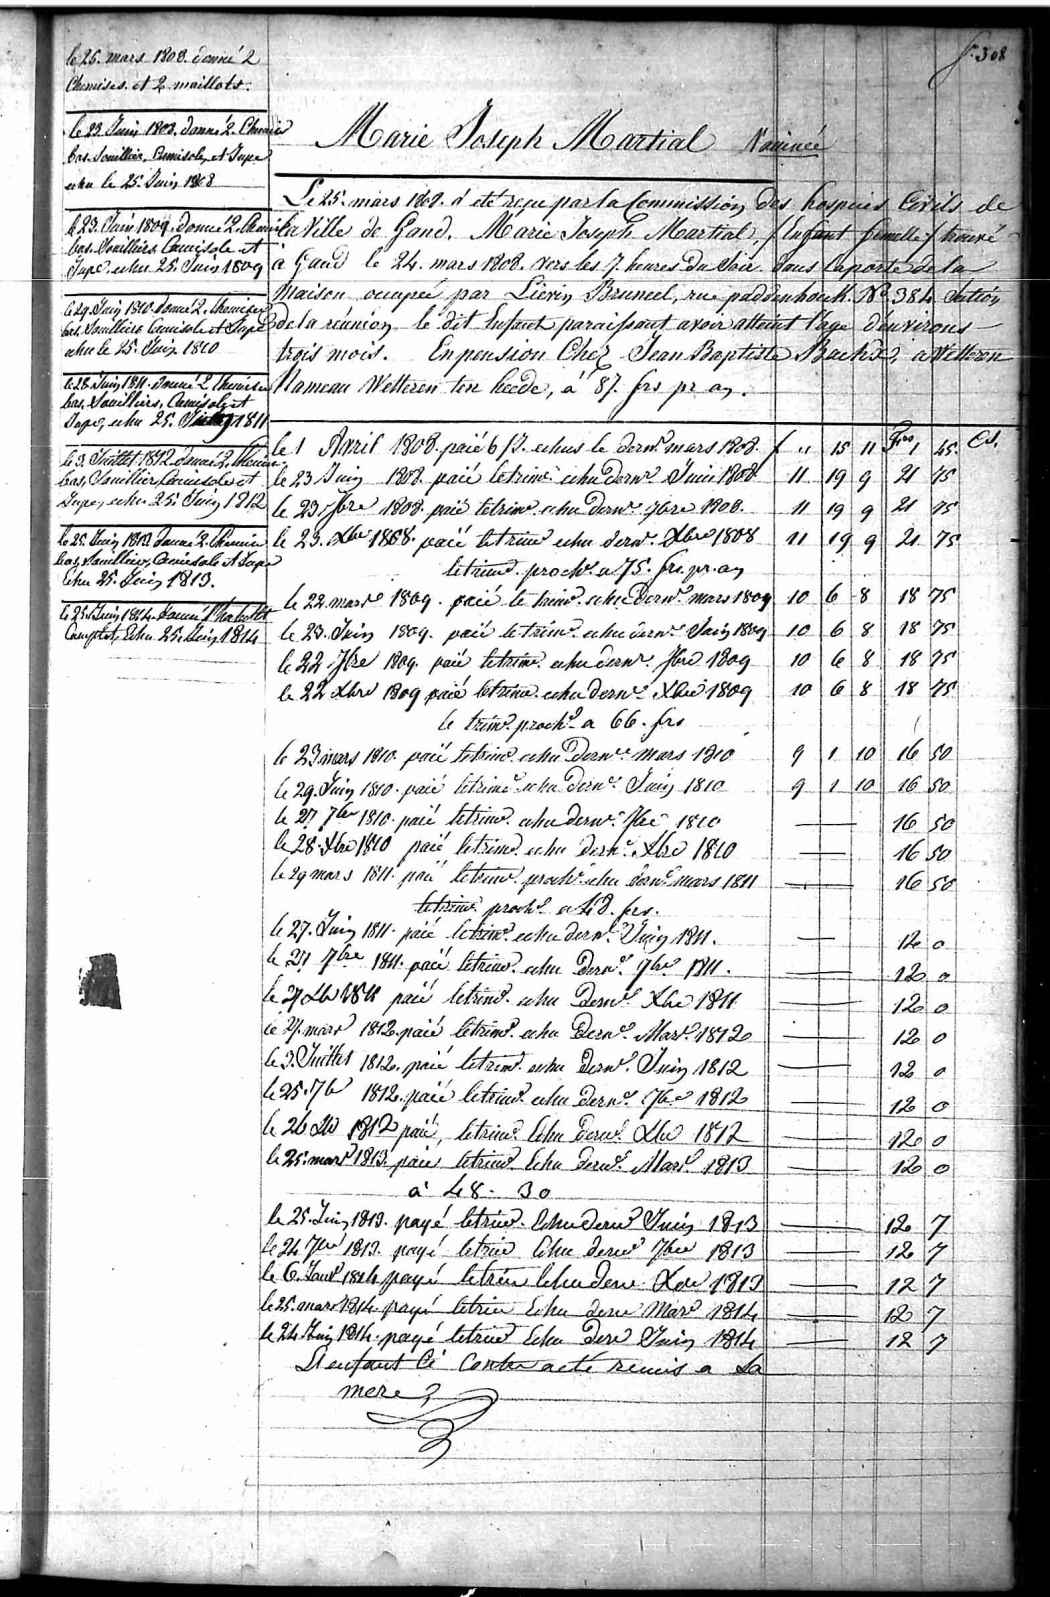 f. 308
le 25. mars 1808. donné 2
Chemises. et 2 maillots.
le 23 Juin 1808. donné 2 Chemise
bas. Souilliers, Camisole, et Jupe
echu le 25. Juin 1808
le 23. Juin 1809. donné 2 Chemise
bas. Souilliers Camisole et
Jupe. echu 25. Juin 1809
le 29 Juin 1810. donné 2. Chemises
bas, Souilliers Camisole et Jupe
echu le 25. Juin 1810
le 28 Juin 1811. donné 2 Chemises
bas, Souilliers, Camisole et
Jupe, echu 25. Juin 1811
le 3. Juillet 1812 donné 2. Chemise
bas, Souilliers, Camisole et
Jupe, echu 25. Juin 1812
le 25. Juin 1813 donné 2 Chemise
bas, Souilliers, Camisole et Jupe
Echu 25. Juin 1813.
le 25. Juin 1814. donné
Complet, Echu 25. Juin 1814
Marie Joseph Martial
Le 25. mars 1808. a été reçue par la Commission des hospices Civils de
la Ville de Gand. Marie Joseph Martial, / Enfant femelle / trouvé
à Gand le 24. mars 1808. vers les 7. heures du Soir sous la porte de la
Maison occupée par Liévin Bruneel, rue paddenhouk. No. 384 Section
de la réunion le dit Enfant paraissant avoir atteint l'age d'environs
trois mois. En pension Chez Jean Baptiste à Wetteren
hameau Wetteren ten heede, à 87. frs pr an.
le 1 Avril 1808. paié 6 echus le dernr. mars 1808. f " 15 11 Frs 1 45. Cs.
le 23 Juin 1808. paié le trimr. echu dernr. Juin 1808 11 19 9 21 75
le 23 7bre 1808. paié le trimr. echu dernr. 7bre 1808. 11 19 9 21 75
le 23. Xbre 1808. paié le trimr echu dernr. Xbre 1808 11 19 9 21 75
le trimr. prochr. a 75. frs. pr. an
le 22 mars 1809. paié le trimr. echu dernr. mars 1809 10 6 8 18 75
le 23. Juin 1809. paié le trimr. echu dernr. Juin 1809 10 6 8 18 75
le 22 7bre 1809. paié le trimr. echu dernr. 7bre 1809 10 6 8 18 75
le 22 Xbre 1809 paié le trimr. echu dernr. Xbre 1809 10 6 8 18 75.
le trimr. prochr. a 66. frs
le 23 mars 1810. paié le trimr. echu dernr. mars 1810 9 1 10 16 50
le 29. Juin 1810. paié le trimr. echu dernr. Juin 1810 9 1 10 16 50
le 27 7bre 1810. paié le trimr. echu dernr. 7bre 1810 16 50
le 28. Xbre 1810 paié le trimr. echu dernr. Xbre 1810 16 50
le 29 mars 1811. paié le trimr. prochr. echu dernr. mars 1811 16 50
le trimr. prochr. a 48. frs.
le 27. Juin 1811. paié le trimr. echu dernr. Juin 1811. 12 0
le 27 7bre 1811. paié le trimr. echu dernr. 7bre 1811. 12 0
le 27 Xbre 1811 paié le trimr. echu dernr. Xbre 1811 12 0
le 27. mars 1812. paié le trimr. echu dernr. Mars. 1812 12 0
le 3. Juillet 1812. paié le trimr. echu dernr. Juin 1812 12 0
le 25. 7b 1812. paié le trimr. echu dernr. 7bre 1812 12 0
le 26 Xbr 1812 paié, le trimr. Echu dernr. Xbre 1812 12 0
le 25. mars 1813. paié le trimr. Echu dernr. Mars. 1813 12 0
à 48. 30
le 25. Juin 1813. payé le trimr. Echu dernr Juin 1813 12 7
le 24 7bre 1813. payé le trim Echu dernr 7bre 1813 12 7
le 6. Janvr 1814 payé le trim Echu dernr Xbre 1813 12 7
le 25. mars 1814 payé le trim Echu dernr Mars 1814 12 7
le 24 Juin 1814. payé le trim Echu dernr Juin 1814 12 7
L'enfant Ci Contre a eté remis a La
mere